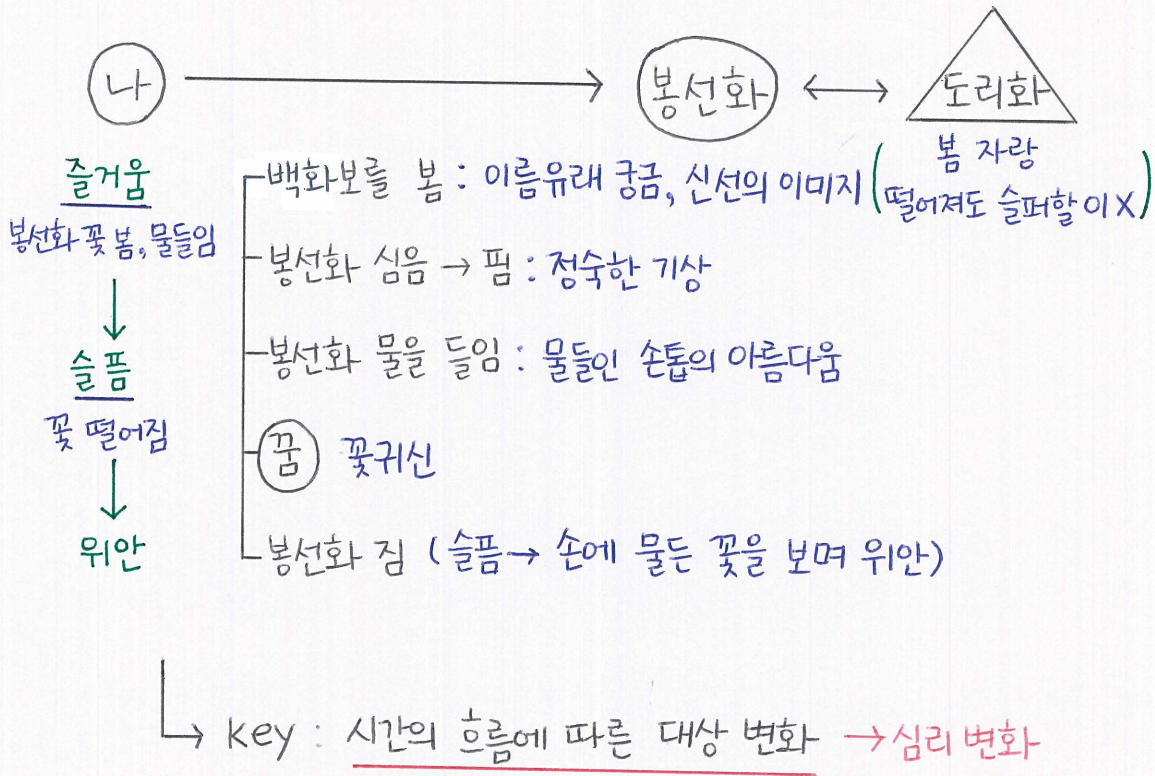 나 → 봉선화 ↔ 도리화
즐거움
봉선화 꽃 봄, 물들임
↓
슬픔
꽃 떨어짐
↓
위안
백화보를 봄 : 이름유래 궁금, 신선의 이미지 (봄 자랑
떨어져도 슬퍼할 이 X)
봉선화 심음 → 핌 : 정숙한 기상
봉선화 물을 들임 : 물들인 손톱의 아름다움
꿈 꽃귀신
봉선화 짐 (슬픔→ 손에 물든 꽃을 보며 위안)
→ key : 시간의 흐름에 따른 대상 변화 → 심리 변화